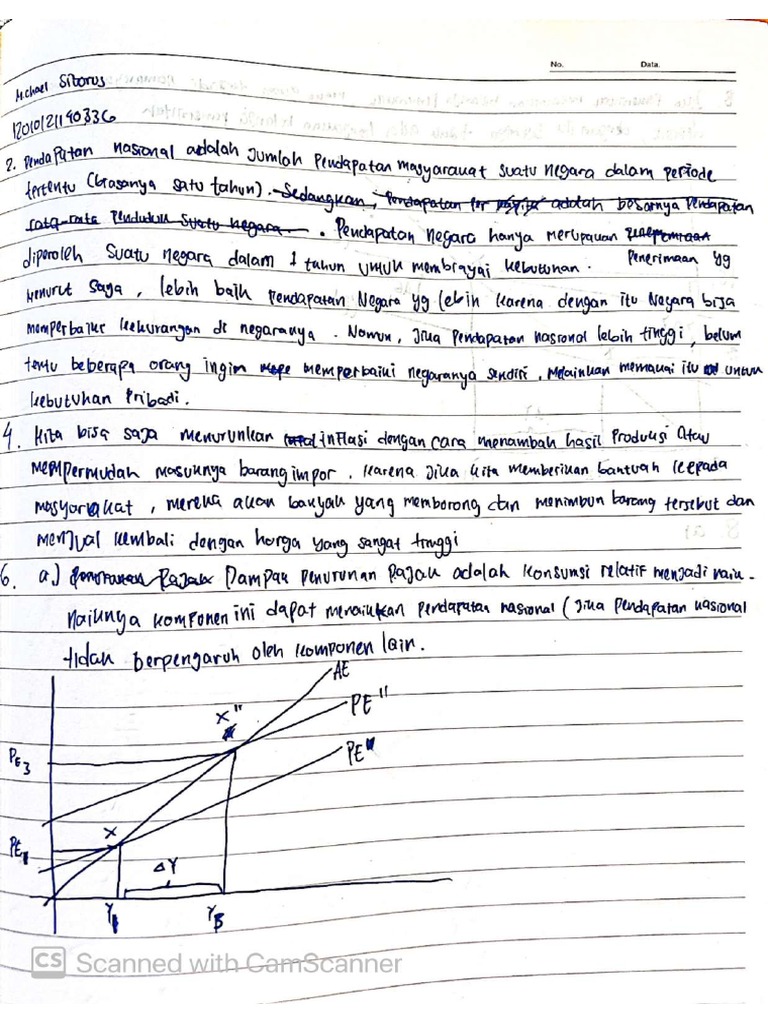 No. Data.
Michael Sitorus
12010121190336
2. Pendapatan nasional adalah jumlah pendapatan masyarakat suatu negara dalam periode
tertentu (biasanya satu tahun). Sedangkan, Pendapatan per adalah besarnya pendapatan
rata-rata penduduk suatu negara. Pendapatan negara hanya merupakan penerimaan
diperoleh suatu negara dalam 1 tahun untuk membiayai kebutuhan. Penerimaan yg
Menurut saya, lebih baik pendapatan Negara yg lebih karena dengan itu Negara bisa
memperbaiki kekurangan di negaranya. Namun, jika pendapatan nasional lebih tinggi, belum
tentu beberapa orang ingin memperbaiki negaranya sendiri. Melainkan memakai itu untuk
kebutuhan pribadi.
4. Kita bisa saja menurunkan inflasi dengan cara menambah hasil produksi atau
mempermudah masuknya barang impor. Karena jika kita memberikan bantuan kepada
masyarakat, mereka akan banyak yang memborong dan menimbun barang tersebut dan
menjual kembali dengan harga yang sangat tinggi
6. a) Dampak penurunan pajak adalah konsumsi relatif menjadi naik.
Naiknya komponen ini dapat menaikkan pendapatan nasional (jika pendapatan nasional
tidak berpengaruh oleh komponen lain.
AE
X"
PE"
PE3
X
ΔY
Y1
CS Scanned with CamScanner